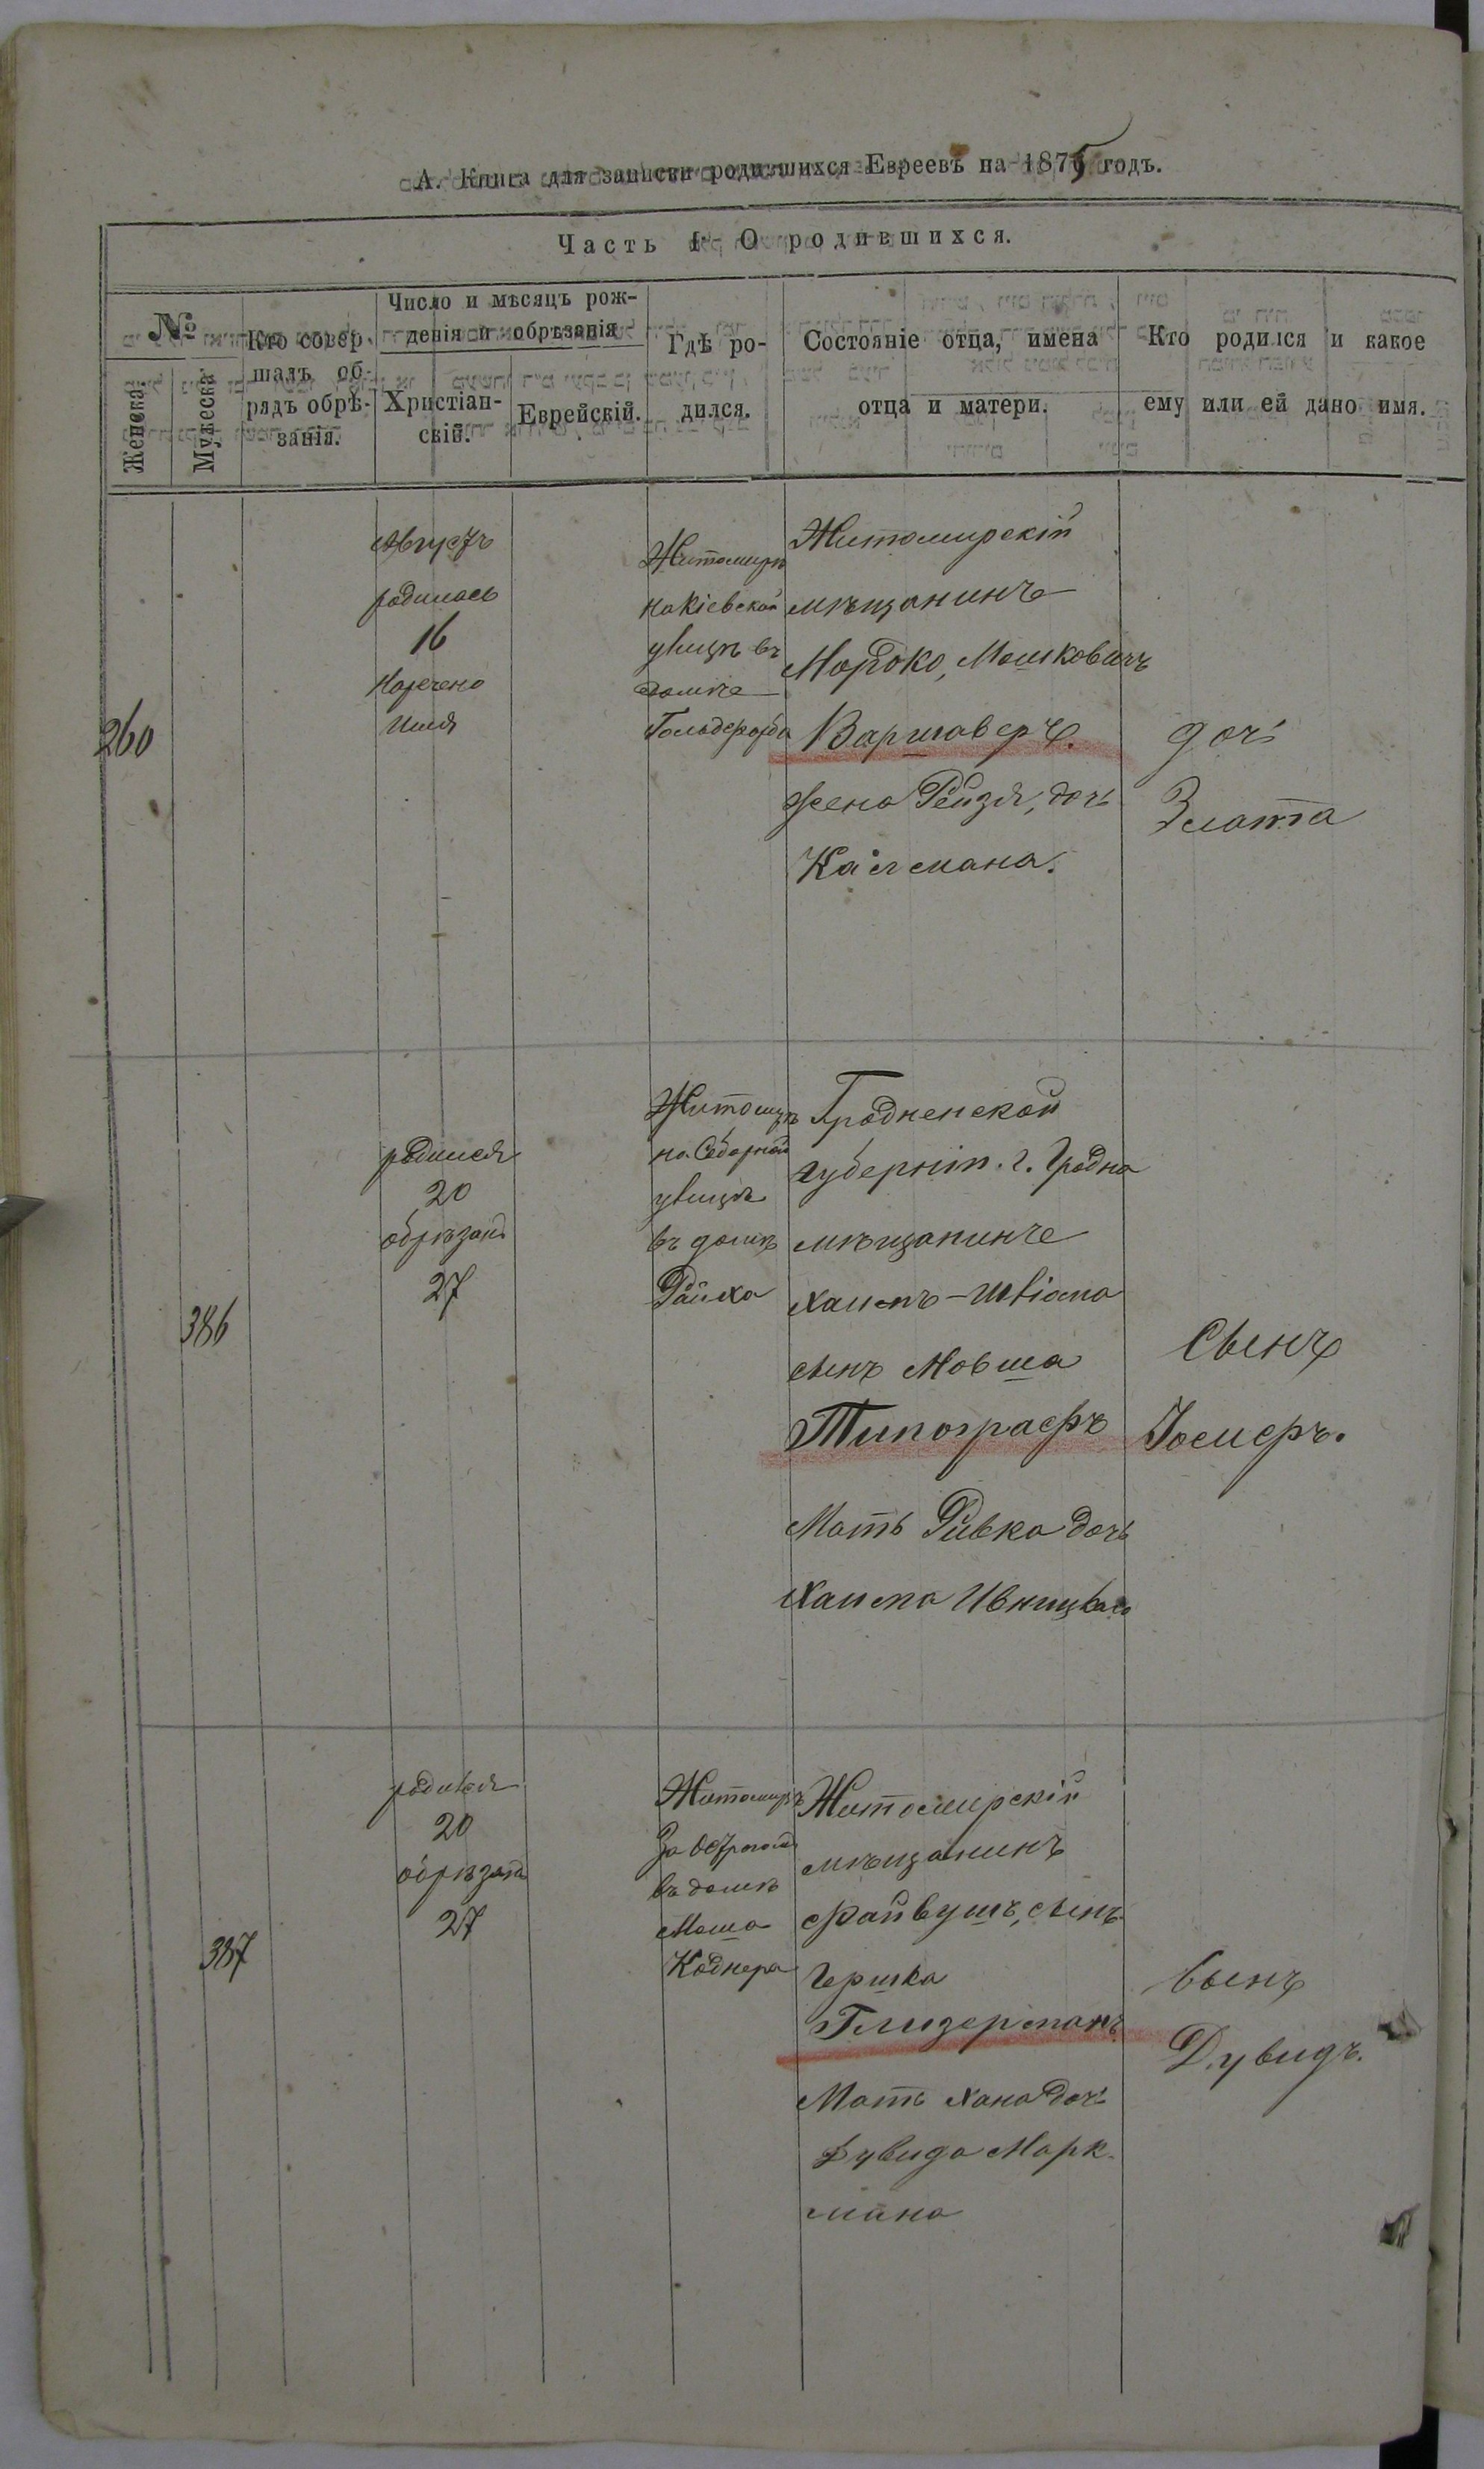 А. Книга для записки родившихся Евреевъ на 1875 годъ.
Часть I. О родившихся.
№
Женска.
Мужеска.
Кто совер-
шалъ об-
рядъ обрѣ-
занія.
Число и мѣсяцъ рож-
денія и обрѣзанія
Христіан-
скій.
Еврейскій.
Гдѣ ро-
дился.
Состояніе отца, имена
отца и матери.
Кто родился и какое
ему или ей дано имя.
260
Августъ
родилась
16
Наречено
имя
Житомиръ
на Кіевской
улицѣ въ
домѣ
Житомирскій
мѣщанинъ
Мордко, Мошковичъ
Варшаверъ.
жена Рейзя, дочь
Калмана.
дочь
Злата
386
родился
20
обрѣзанъ
27
Житомиръ
на Соборной
улицѣ
въ домѣ
Райха
Гродненской
губерніи. г. Гродна
мѣщанинъ
Хаимъ-
сынъ Мовша
Типографъ
Мать Ривка дочь
Хаима Ивницкаго
Сынъ
Іосиеръ.
387
родился
20
обрѣзанъ
27
Житомиръ
За
въ домѣ
Моша
Коднера
Житомирскій
мѣщанинъ
Файвушъ, сынъ
Гершка
Глизерманъ
Мать Хана дочь
Дувида Марк-
мана
Сынъ
Дувидъ.